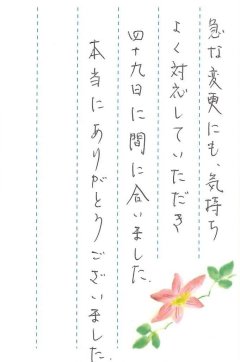 急な変更にも、気持ち
よく対応していただき
四十九日に間に合いました.
本当にありがとうございました.